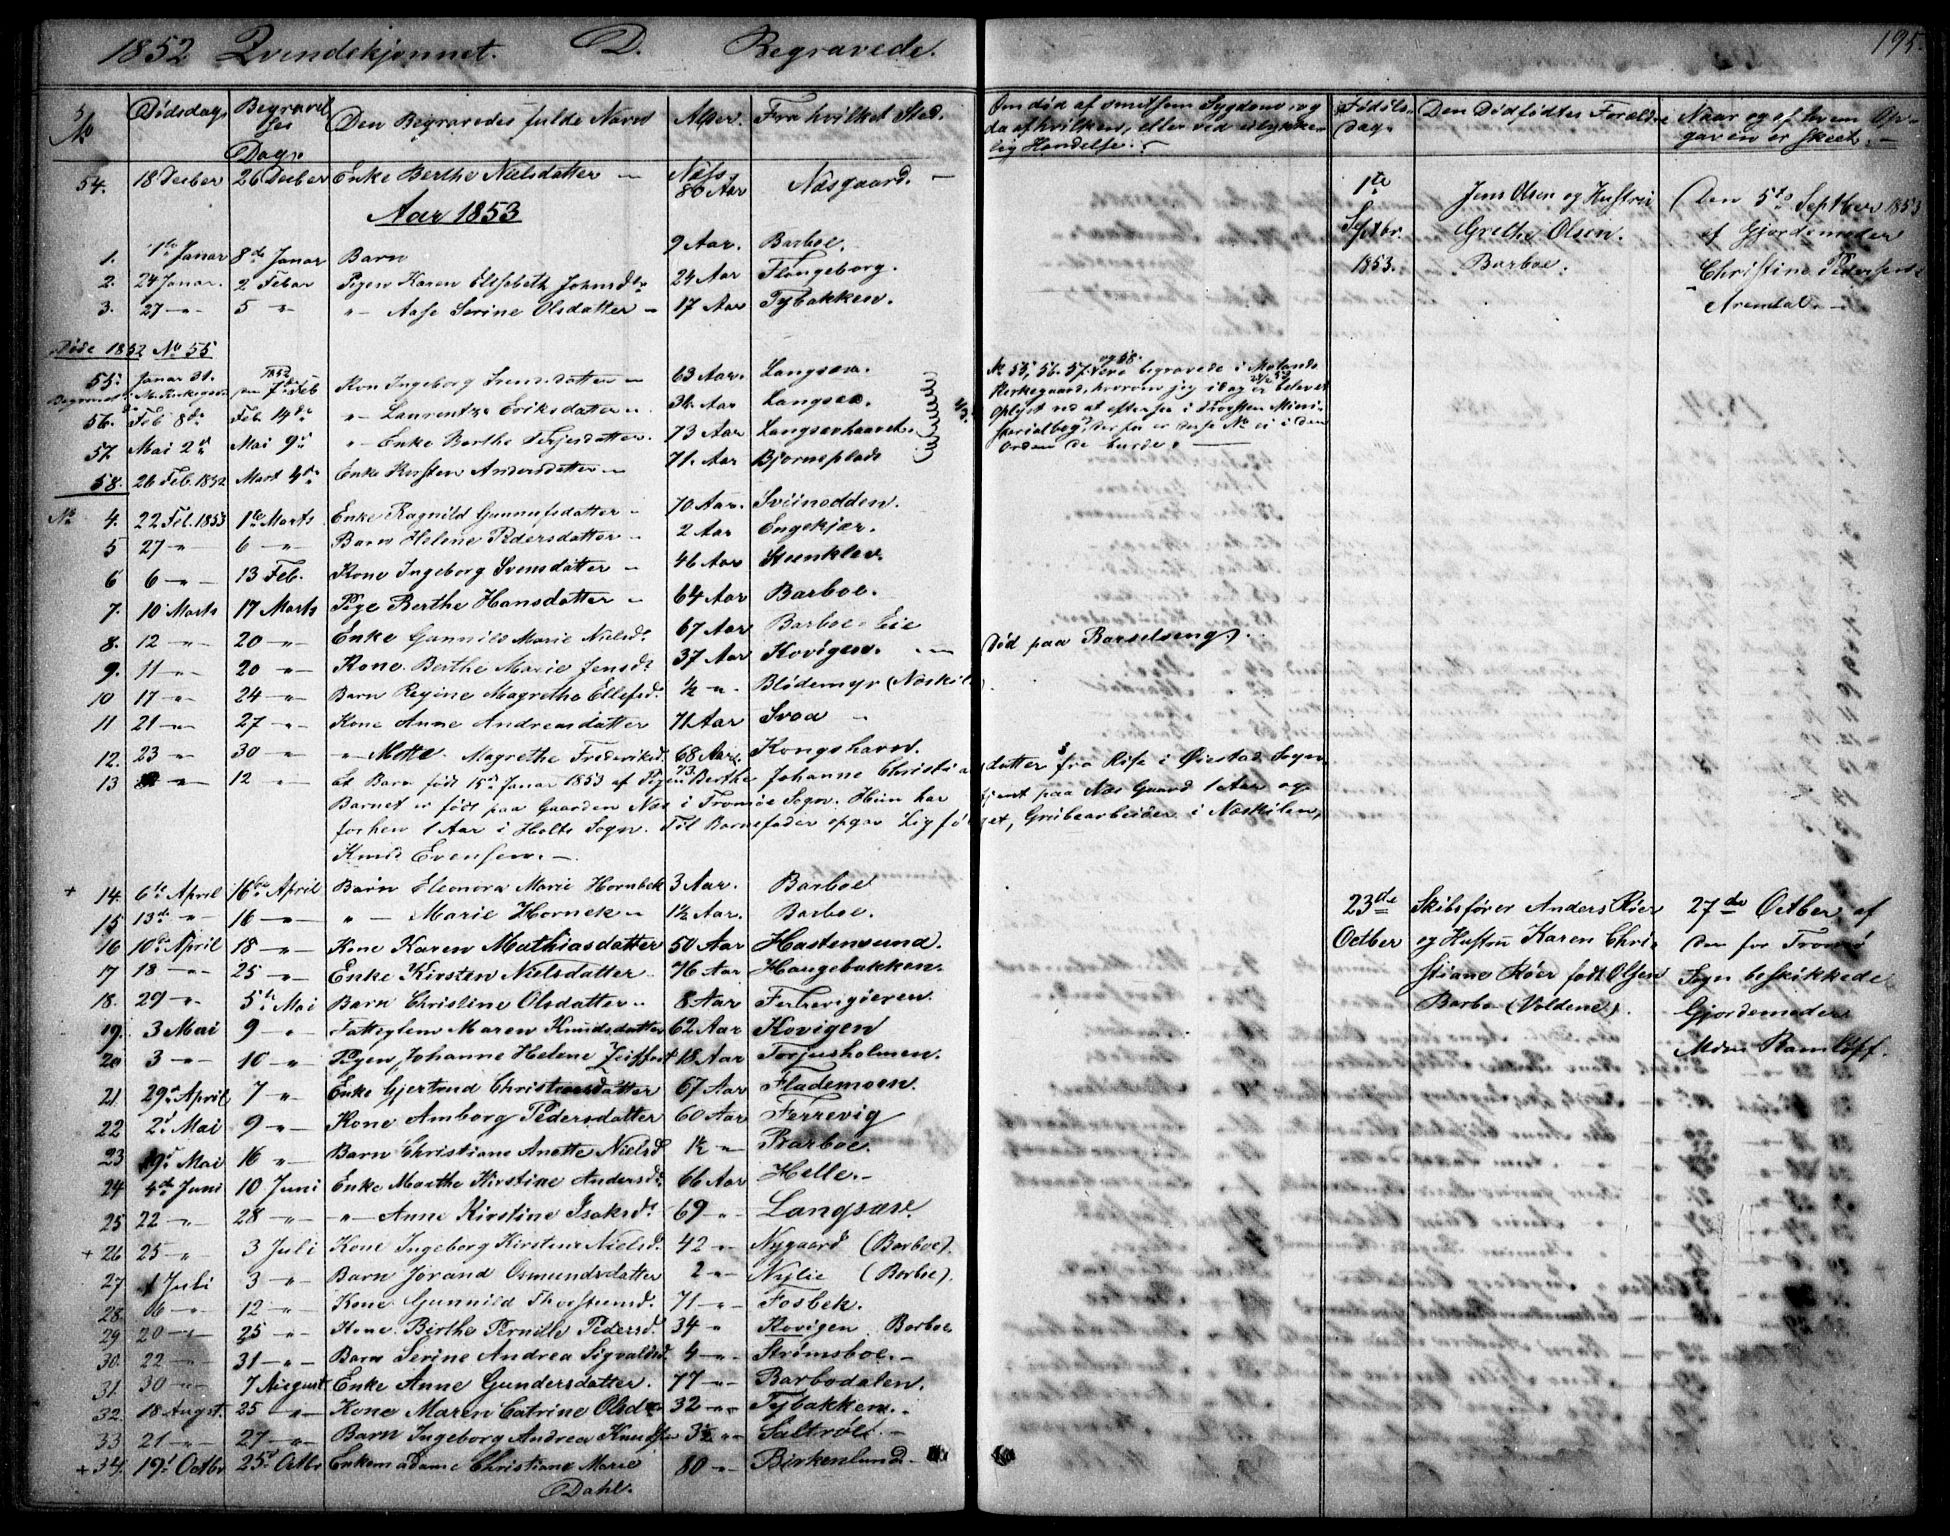 1852 Qvindekjønnet. D. Begravede. 195.
No Dødsdag Begravelses Dag. Den Begravedes fulde Navn Alder. Fra hvilket Sted.
Om død af smitsom Sygdom, og da af hvilken, eller ved ulykkelig Hændelse. Fødselsdag. Den Dødfødtes Forældre Naar og af hvem Opgaven er skeet.
54. 18 Decber 26 Decber Enke Berthe Nielsdatter 86 Aar Næsgaard.
Aar 1853
1. 1te Januar 8de Januar Barn 9 Aar. Barboe.
2. 24 Januar. 2 Febar Pigen Karen Elisabeth Johnsdr 24 Aar Flangeborg.
3. 27 -"- 5 " "- Aase Serine Olsdatter 17 Aar Tybakken.
1te Septbr. 1853.
Jens Olsen og Hustru
Grethe Olsen.
Barboe.
Den 5te September 1853
af Gjordemoder
Christine Pedersen
Arendal.
Døde 1852 No 55
55. Januar 31. 7de Feb Kon Ingeborg datter 63 Aar. Langsæ.
56. Feb 8de Feb. 14de "- Laurentze Eriksdatter Aar Langsæ.
57. Mai 2d Mai 9d "- Enke Berthe Terjesdatter. 73 Aar Langsævhaavet.
58. 26 Feb. 1852 Mart 4de Enke Kirsten Andersdatter 71. Aar Bjørneplads
No 55, 56. 57. og 58. Vare begravede i Molands
Kirkegaard, hvorom jeg idag er blevet
Oplyst ved at efterse i Troesten Mini-
sterialbog, derfor er disse No ei i den
Orden de burde.
No 4. 22 Feb. 1853 1te Marts Enke Ragnild Gunnufsdatter 70 Aar. Sviinodden.
5 27 -"- 6 -"- Barn Helene Pedersdatter 2 Aar Engekjær.
6 6 -"- 13 Feb. Kone Ingeborg Svensdatter 46 Aar Steenklev.
7. 10 Marts 17 Marts Pige Berthe Hansdatter 64 Aar Barboe.
8. 12 -"- 20 -"- Enke Gunnild Marie Nielsd. 67 Aar Barboe Eie
9. 11 -"- 20 -"- Kone. Berthe Marie Jensdr 37 Aar Kovigen. Død paa Barselseng.
10 17 -"- 24 -"- Barn Regine Magrethe Ellefsd. ½ -"- Blødemyr (Næskilen).
11 21 -"- 27 -"- Kone Anne Andreasdatter 71 Aar Svoa
12. 23 -"- 30 -"- "- Mette. Magrethe Frederiksd. 68 Aar. Kongshavn.
13 -"- 12 -"- Et Barn født 15de Januar 1853 af Pigen Berthe Johanne Christiansdatter fra Rise i Øiestad Sogn.
Barnet er født paa Gaarden Næs i Tromøe Sogn. Hun har tjent paa Næs Gaard 1 Aar og
forhen 1 Aar i Holts Sogn. Til Barnefader opgav Ligfølget, Grubearbeider i Næskilen,
Knud Evensen.
+ 14. 6te April 16de April Barn Eleonora Marie Hornbek 3 Aar. Barboe
15 13de -"- 16 -"- "- Marie Hornek 1½ Aar. Barboe.
16 10de April 18 -"- Kone Karen Mathiasdatter 50 Aar Hastensund.
17 18 -"- 25 -"- Enke Kirsten Nielsdatter 76 Aar Haugebakken.
18. 29 -"- 5te Mai Barn Christine Olsdatter 8 Aar
19. 3 Mai 9 -"- Fattiglem Maren Knudsdatter 62 Aar Kovigen
20 3 -"- 10 -"- Pigen Johanne Helene Zeiffert 18 Aar Torjusholmen.
21 29d April 7 -"- Enke Gjertrud Christensdatter 67 Aar Flademoen.
22 2d Mai 9 -"- Kone Amborg Pedersdatter 60 Aar Færrevig
23 Mai 16 -"- Barn Christiane Anette Nielsd 1½ -"- Barboe.
24 4de Juni 10 Juni Enke Marthe Kirstine Andersdr 66 Aar Helle.
25 22 -"- 28 -"- "- Anne Kirstine Isaksdr 69 -"- Langsæe.
+ 26 25 -"- 3 Juli Kone Ingeborg Kirstine Nielsd. 42 -"- Nygaard (Barboe).
27 1 Juli 3 -"- Barn Jørand Osmundsdatter 2 -"- Nylie (Barboe).
28. 6 -"- 12 -"- Kone Gunnild Thorstensd. 71 -"- Fosbek.
29 20 -"- 25 -"- Kone Birthe Pernille Pedersd. 34 " Kovigen Barboe
30. 22 -"- 31 -"- Barn Serine Andrea Sigvaldsd. 4 -"- Strømsboe.
31. 30 -"- 7 August Enke Anne Gundersdatter. 77 -"- Barbodalen.
32. 18 Augst. 25 -"- Kone Maren Catrine Olsd 32 -"- Tybakken.
33 21 -"- 27 -"- Barn Ingeborg Andrea Knuds 3½ -"- Saltrød.
+ 34. 19d Octbr 25d Octbr Enkemadame Christiane Marie 80 -"- Birkenlund
Dahl.
23de Octber
Skibsfører Anders Røer
og Hustru Karen Chri-
stiane Røer født Olsen
Barbo (Voldene).
27de Octber af
den for Tromø
Sogn beskikkede
Gjordemoder
Ramløff.